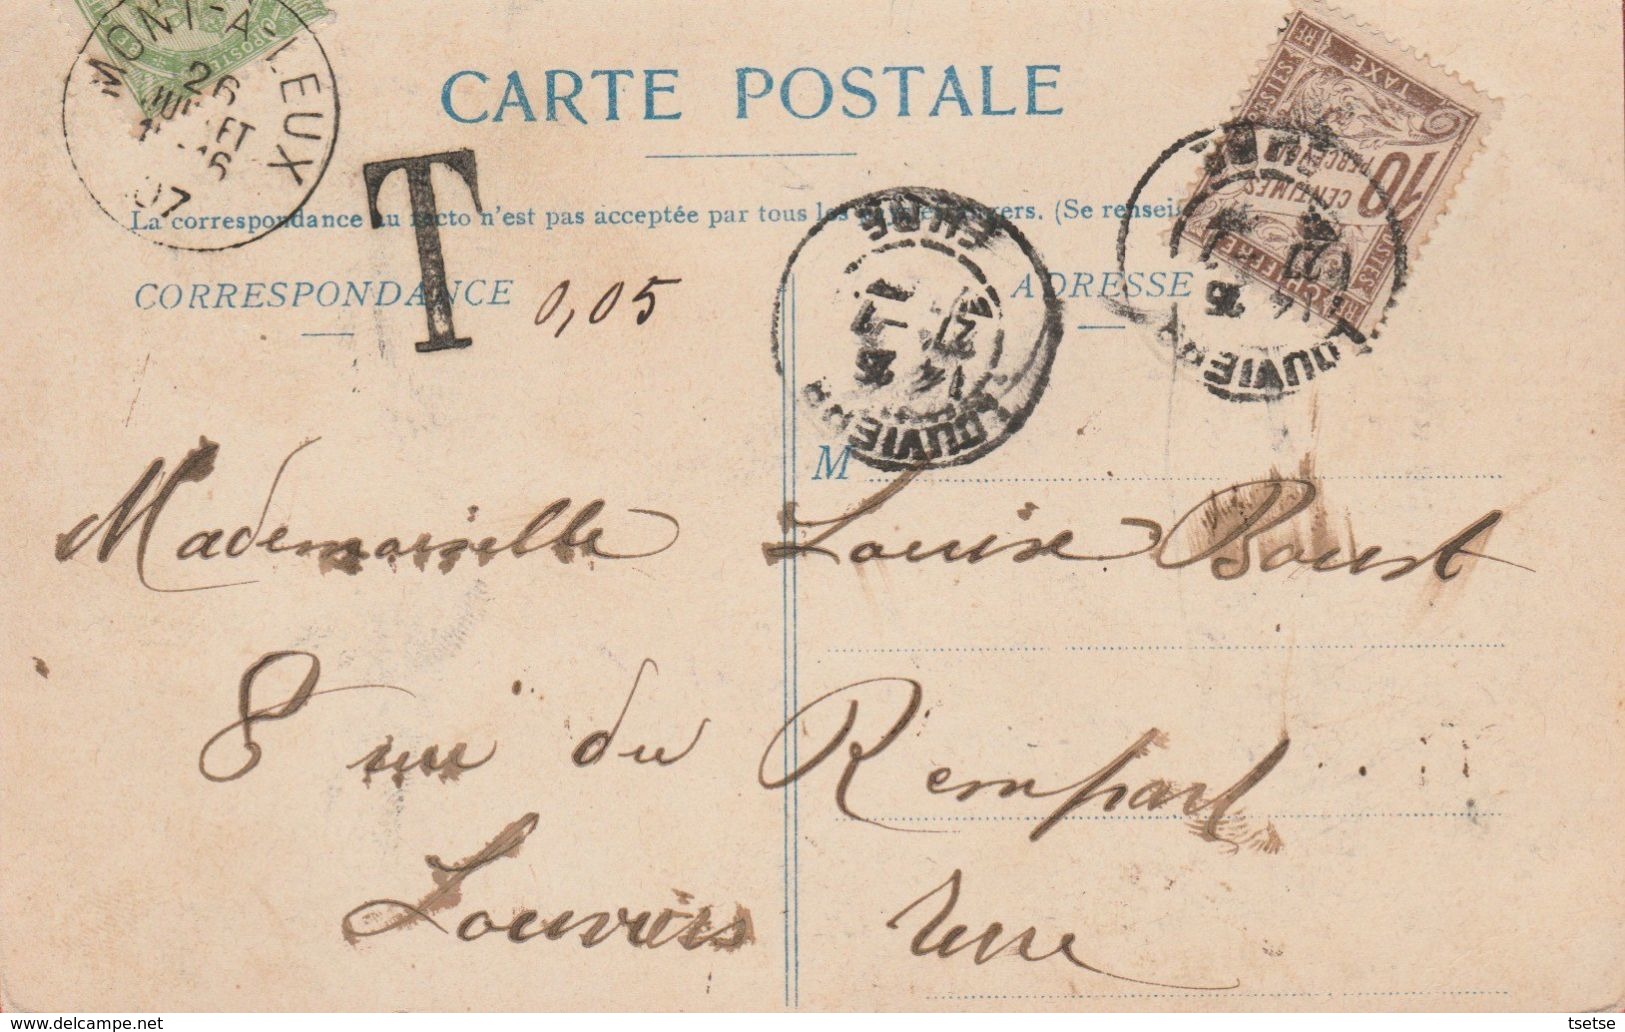 MONT-A-LEUX
26
07
CARTE POSTALE
TAXE
10
CENTIMES
T
La correspondance au recto n'est pas acceptée par tous les (Se rensei
CORRESPONDANCE 0,05
ADRESSE
LOUVIERS
EURE
27
LOUVIERS
27
M
Mademoiselle Louise Boust
8 rue du Rempart
Louviers Eure
tsetse